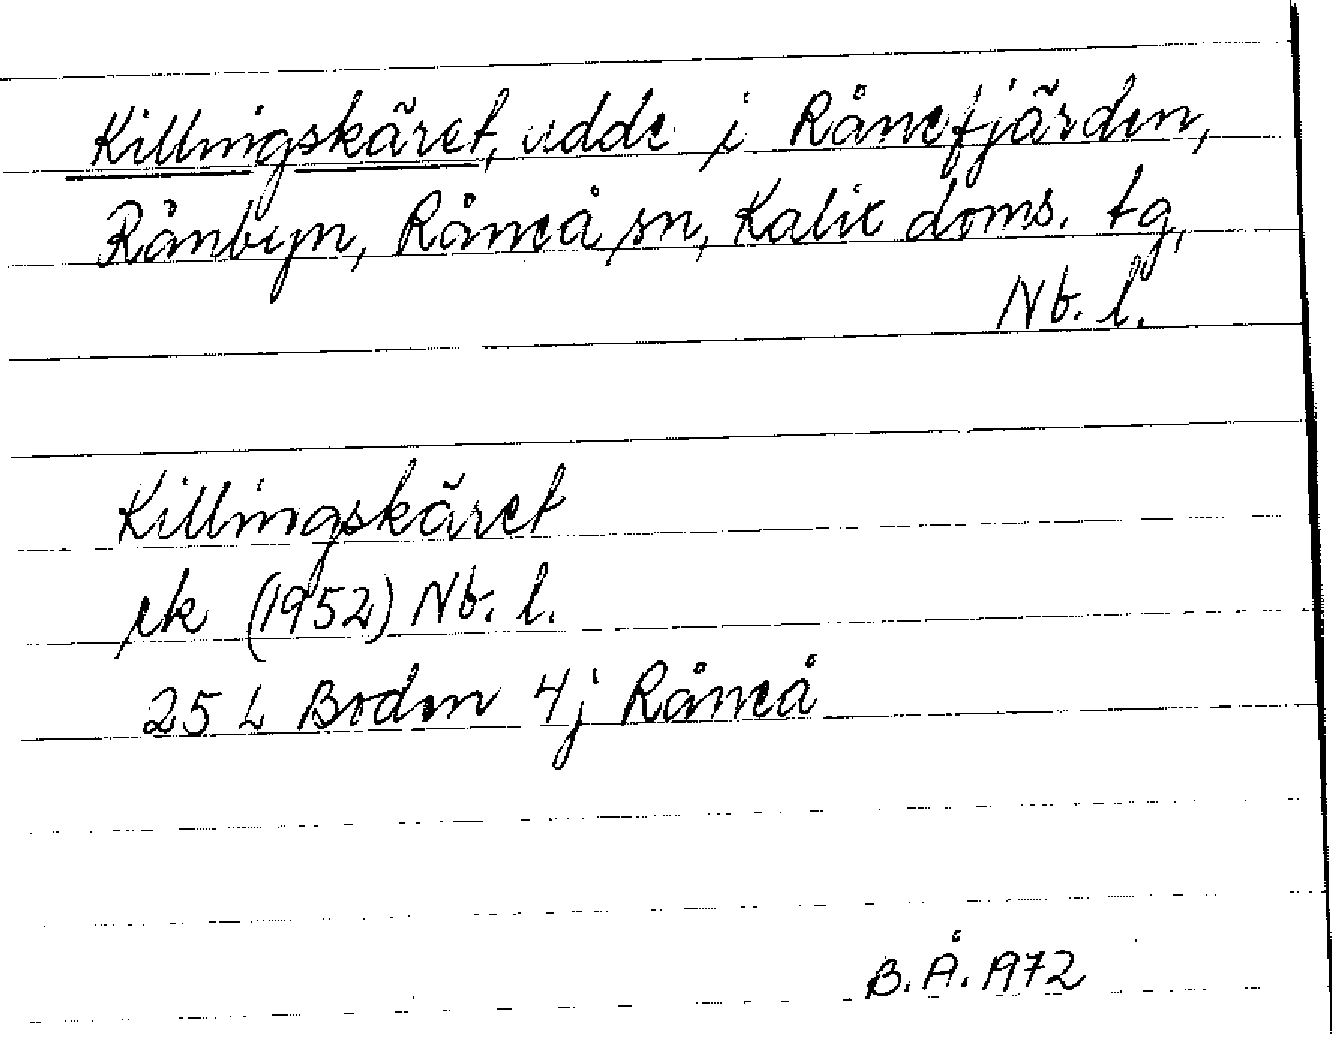 Killingskäret, udde i Rånefjärden,
Rånbyn, Råneå sn, Kalix doms. tg,
Nb. l.
Killingskäret
ek (1952) Nb. l.
25 L Boden 4j Råneå
B. Å. 1972